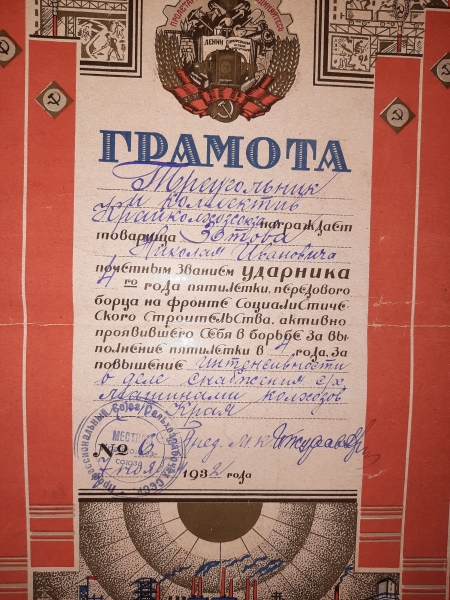 ПРОЛЕТА
ЛЕНИН
ГРАМОТА
Треугольник
и коллектив
Крайколхозсоюза награждает
товарища Зотова
Николая Ивановича
почетным званием ударника
4го года пятилетки, передового
борца на фронте Социалистиче-
ского Строительства, активно
проявившего себя в борьбе за вы-
полнение пятилетки в 4 года, за
повышение интенсивности
в деле снабжения с/х.
машинами колхозов
Края
№ 6 Пред. МК
7 ноя 1932 года
Профессиональный Союз
СССР
МЕСТН
союза